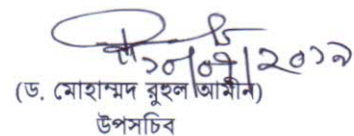 ১০/০৭/২০১৯
(ড. মোহাম্মদ রুহুল আমীন)
উপসচিব